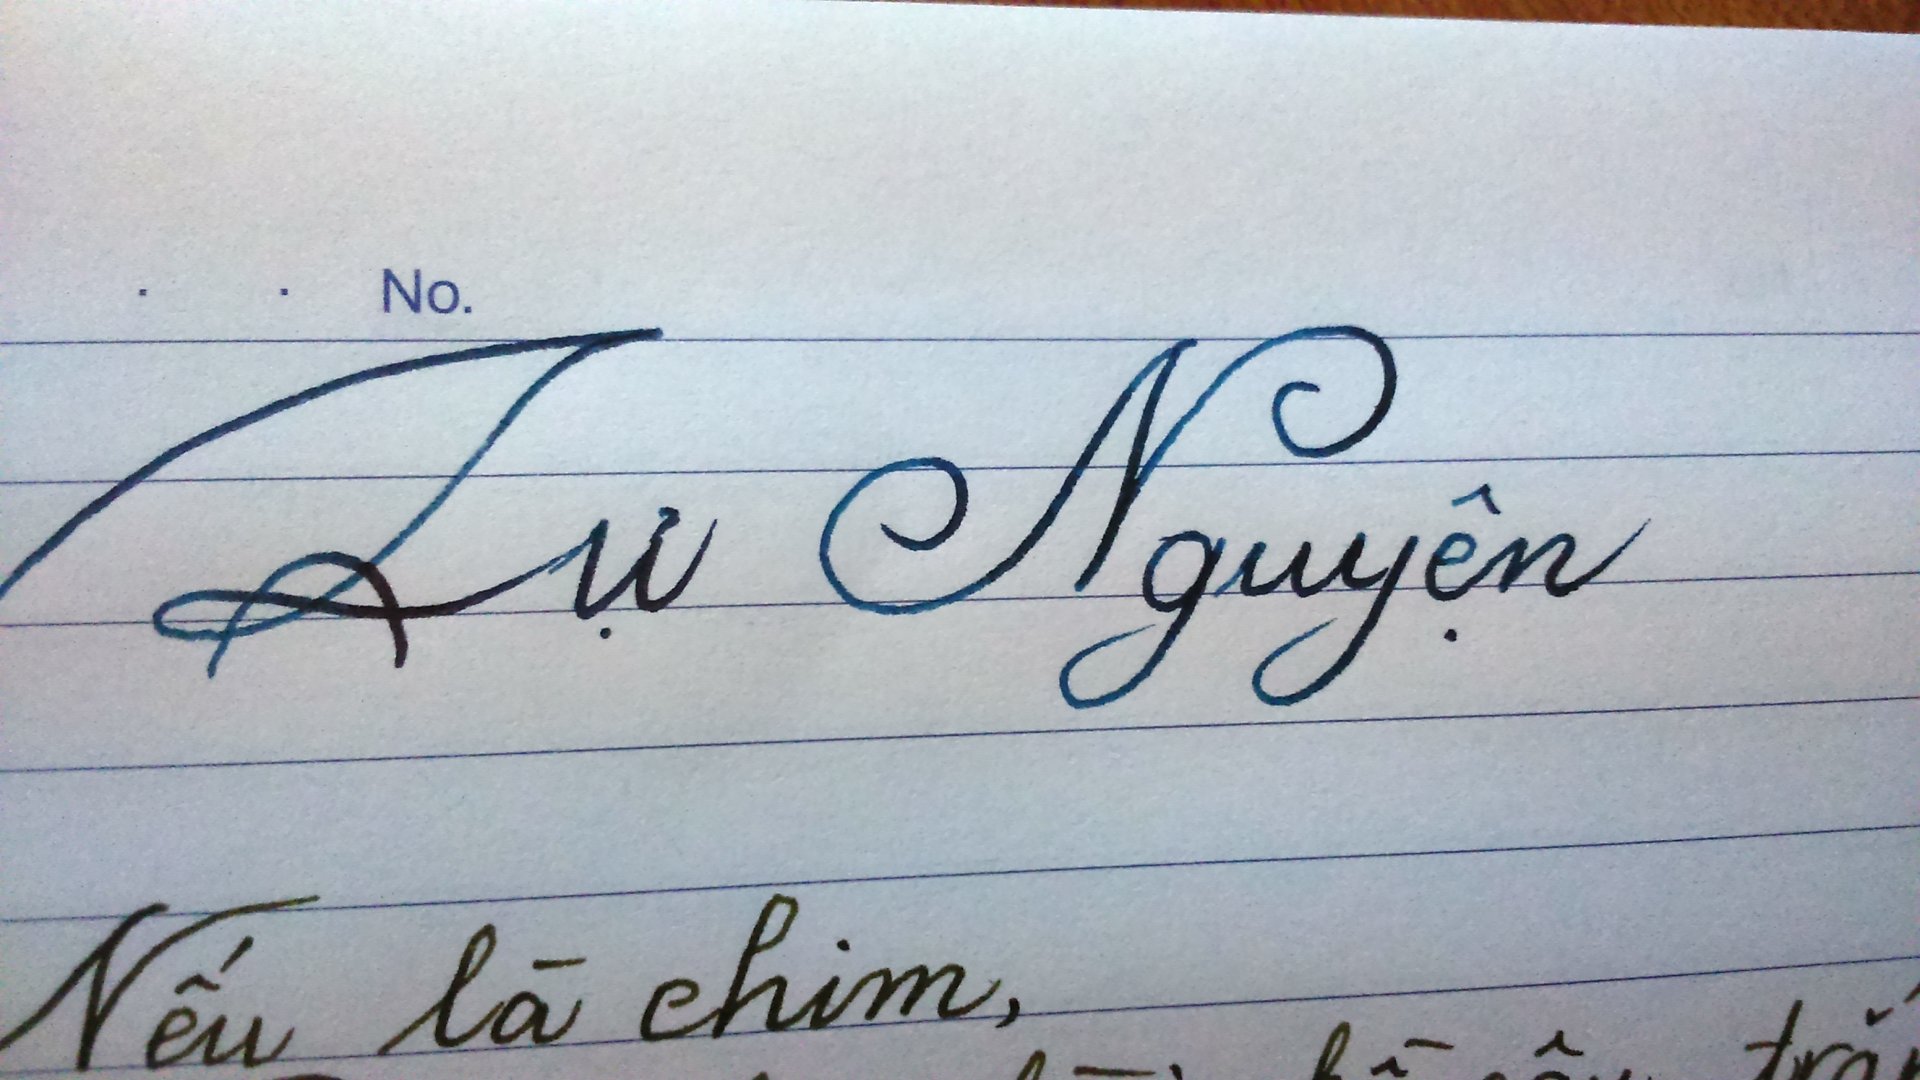 No.
Tự Nguyện
Nếu là chim,